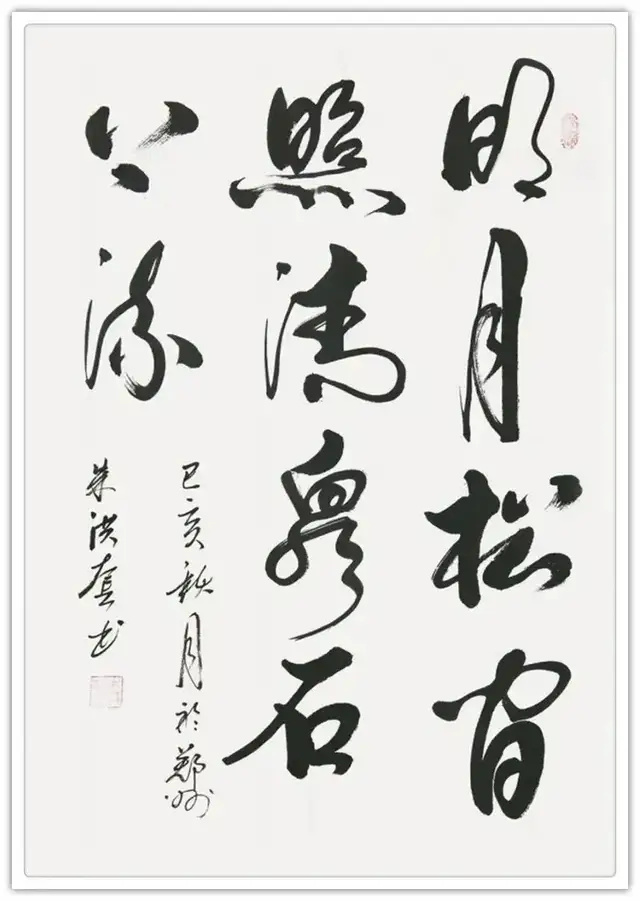 明月松間
照清泉石
上流
己亥秋月於鄭州
朱洪套书